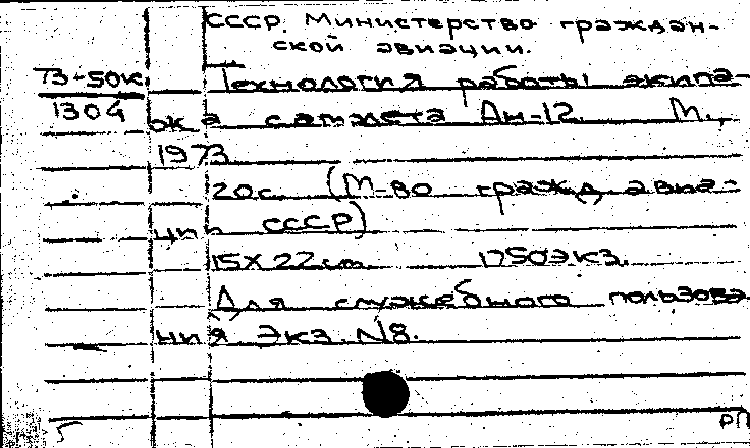 СССР. Министерство граждан-
ской авиации.
73-50к Технология работы экипа-
1304 жа самолета Ан-12. М.,
1973
20с. (М-во гражд. авиа-
ции СССР)
15X22cm. 1750экз.
Для служебного пользова
ния. Экз. N8.
РП